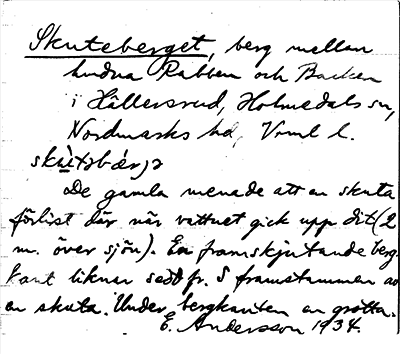 Skuteberget, berg mellan
hudna Rabben och Backen
i Hällersrud, Holmedals sn,
Nordmarks hd, Vrml l.
De gamla menade att en skuta
förlist där när vattnet gick upp dit (2
m. över sjön). En framskjutande berg-
kant liknar sedd fr. S framstammen av
en skuta. Under bergkanten en grotta.
E. Andersson 1934.